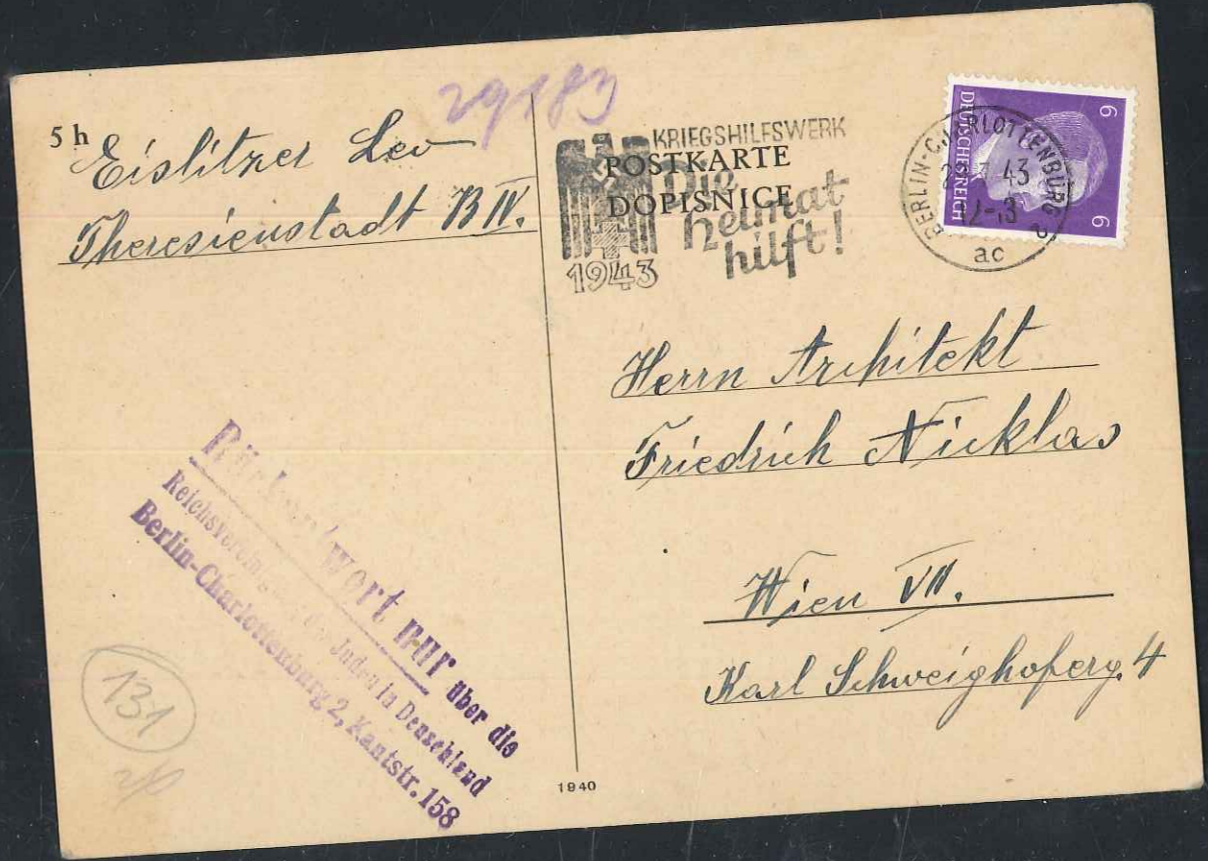 5 h
29183
Eislitzer Leo
Theresienstadt B IV.
KRIEGSHILFSWERK
POSTKARTE
DOPISNICE
Die
Heimat
hilft!
1943
DEUTSCHES REICH
6
6
BERLIN-CHARLOTTENBURG 2
43
12-13
ac
Herrn Architekt
Friedrich Nicklas
Wien VII.
Karl Schweighoferg. 4
Rückantwort nur über die
Reichsvereinigung der Juden in Deuschland
Berlin-Charlottenburg 2, Kantstr. 158
131
1940